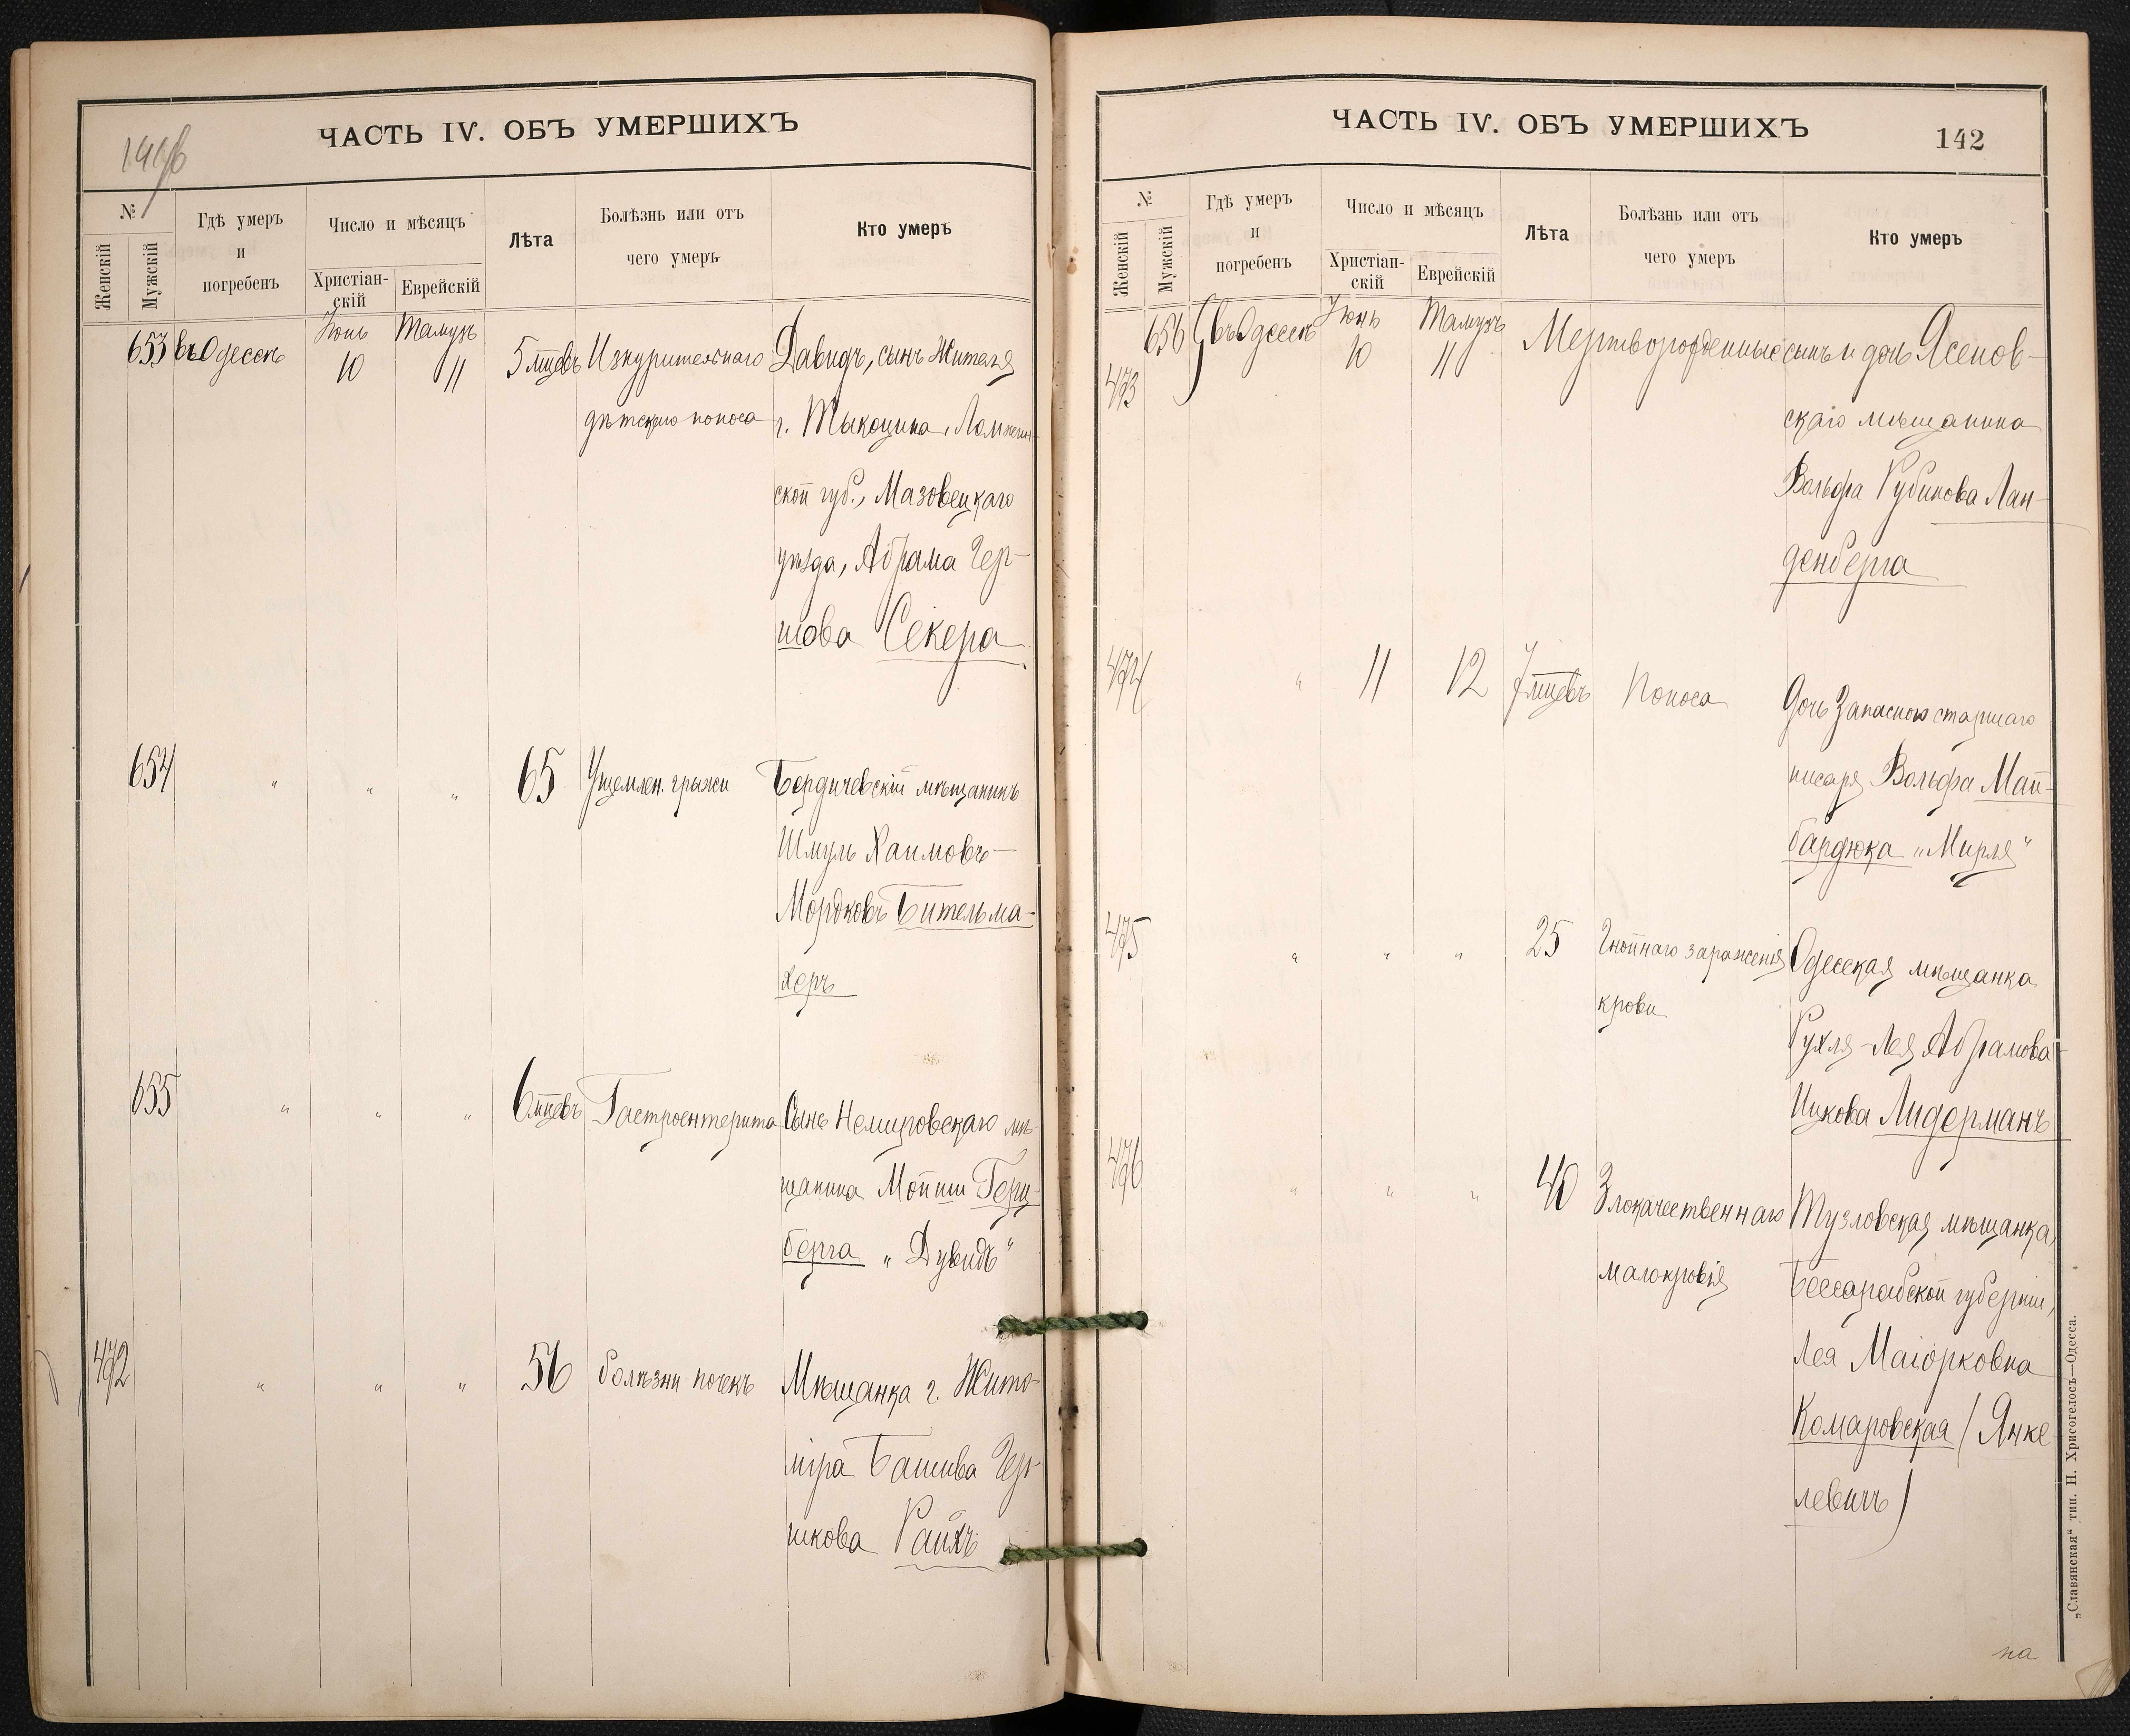 ЧАСТЬ IV. ОБЪ УМЕРШИХЪ
№
Женскій
Мужскій
Гдѣ умеръ
и
погребенъ
Число и мѣсяцъ
Христіан-
скій
Еврейскій
Лѣта
Болѣзнь или отъ
чего умеръ
Кто умеръ
653 въ Одессѣ Іюнь 10 Тамузъ 11 5 мцевъ Изнурительнаго Давидъ, сынъ жителя
дѣтскаго поноса г. Тыкоцина, Ломжин-
ской губ., Мазовецкаго
уѣзда, Абрама Гер-
шова Секера
654 " " " 65 Ущемлен. грыжи Бердичевскій мѣщанинъ
Шмуль Хаимовъ-
Мордковъ Бительма-
херъ
655 " " " 6 мцевъ Гастроентерита Сынъ Немировскаго мѣ-
щанина Мойши Герц-
берга „Дувидъ"
472 " " " 56 болѣзни почекъ Мѣщанка г. Жито-
міра Башива Гер-
шкова Райхъ
ЧАСТЬ IV. ОБЪ УМЕРШИХЪ
142
№
Женскій
Мужскій
Гдѣ умеръ
и
погребенъ
Число и мѣсяцъ
Христіан-
скій
Еврейскій
Лѣта
Болѣзнь или отъ
чего умеръ
Кто умеръ
656 въ Одессѣ Іюнь 10 Тамузъ 11 Мертворожденные сынъ и дочь Ясенов-
473 скаго мѣщанина
Вольфа Рубинова Лан-
денберга
474 " 11 12 7 мцевъ Поноса Дочь запасного старшаго
писаря Вольфа Май-
бардюка „Мирля"
475 " " " 25 Гнойнаго зараженія Одесская мѣщанка
крови Рухля-Лея Абрамова-
Ицкова Лидерманъ
476 " " " 40 Злокачественнаго Тузловская мѣщанка,
малокровія Бессарабской губерніи,
Лея Маіорковна
Комаровская (Янке
левичъ)
на
„Славянская" тип. Н. Хрисогелосъ—Одесса.